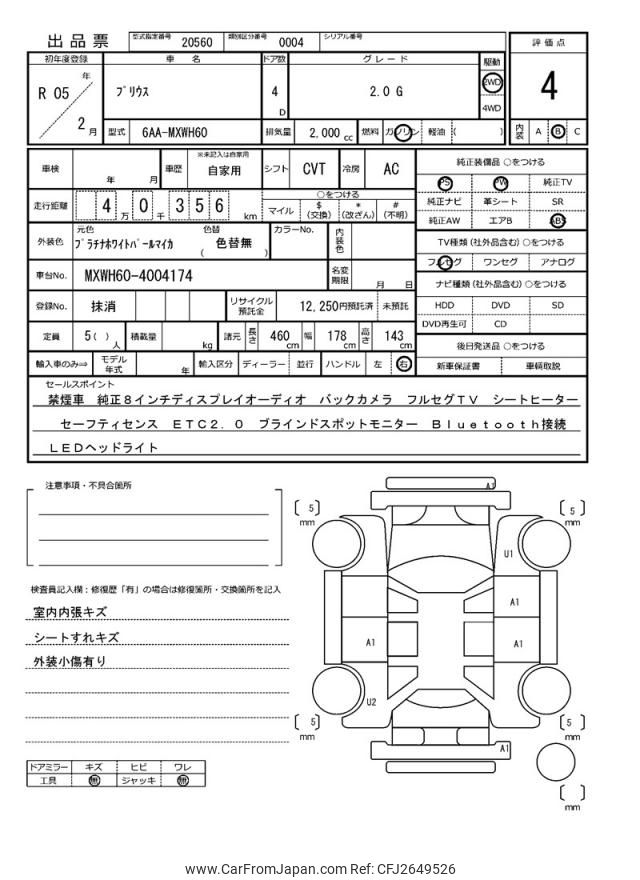 出品票 型式指定番号 20560 類別区分番号 0004 シリアル番号
評価点
4
内装 A B C
初年度登録 車名 ドア数 グレード 駆動
R 05 年 2 月
プリウス 4 D 2.0 G 2WD
4WD
型式 6AA-MXWH60 排気量 2,000 cc 燃料 ガソリン 軽油 ( )
車検 年 月 車歴 ※未記入は自家用 自家用 シフト CVT 冷房 AC
走行距離 4 万 0 千 3 5 6 km
○をつける
マイル $(交換) *(改ざん) #(不明)
外装色 元色 プラチナホワイトパールマイカ 色替 ( 色替無 ) カラーNo. 内装色
車台No. MXWH60-4004174 名変期限 月 日
登録No. 抹消 リサイクル預託金 12,250円預託済 未預託
定員 5( ) 人 積載量 kg 諸元 長さ 460 cm 幅 178 cm 高さ 143 cm
輸入車のみ⇒ モデル年式 年 輸入区分 ディーラー 並行 ハンドル 左 右
純正装備品 ○をつける
PS PW 純正TV
純正ナビ 革シート SR
純正AW エアB ABS
TV種類 (社外品含む) ○をつける
フルセグ ワンセグ アナログ
ナビ種類 (社外品含む) ○をつける
HDD DVD SD
DVD再生可 CD
後日発送品 ○をつける
新車保証書 車輌取説
セールスポイント
禁煙車 純正8インチディスプレイオーディオ バックカメラ フルセグTV シートヒーター
セーフティセンス ETC2.0 ブラインドスポットモニター Bluetooth接続
LEDヘッドライト
注意事項・不具合箇所
検査員記入欄:修復歴「有」の場合は修復箇所・交換箇所を記入
室内内張キズ
シートすれキズ
外装小傷有り
ドアミラー キズ ヒビ ワレ
工具 無 ジャッキ 無
A1
[ 5 ] mm
[ 5 ] mm
U1
A1
A1
A1
U2
[ 5 ] mm
[ 5 ] mm
A1
[ ] mm
www.CarFromJapan.com Ref: CFJ2649526